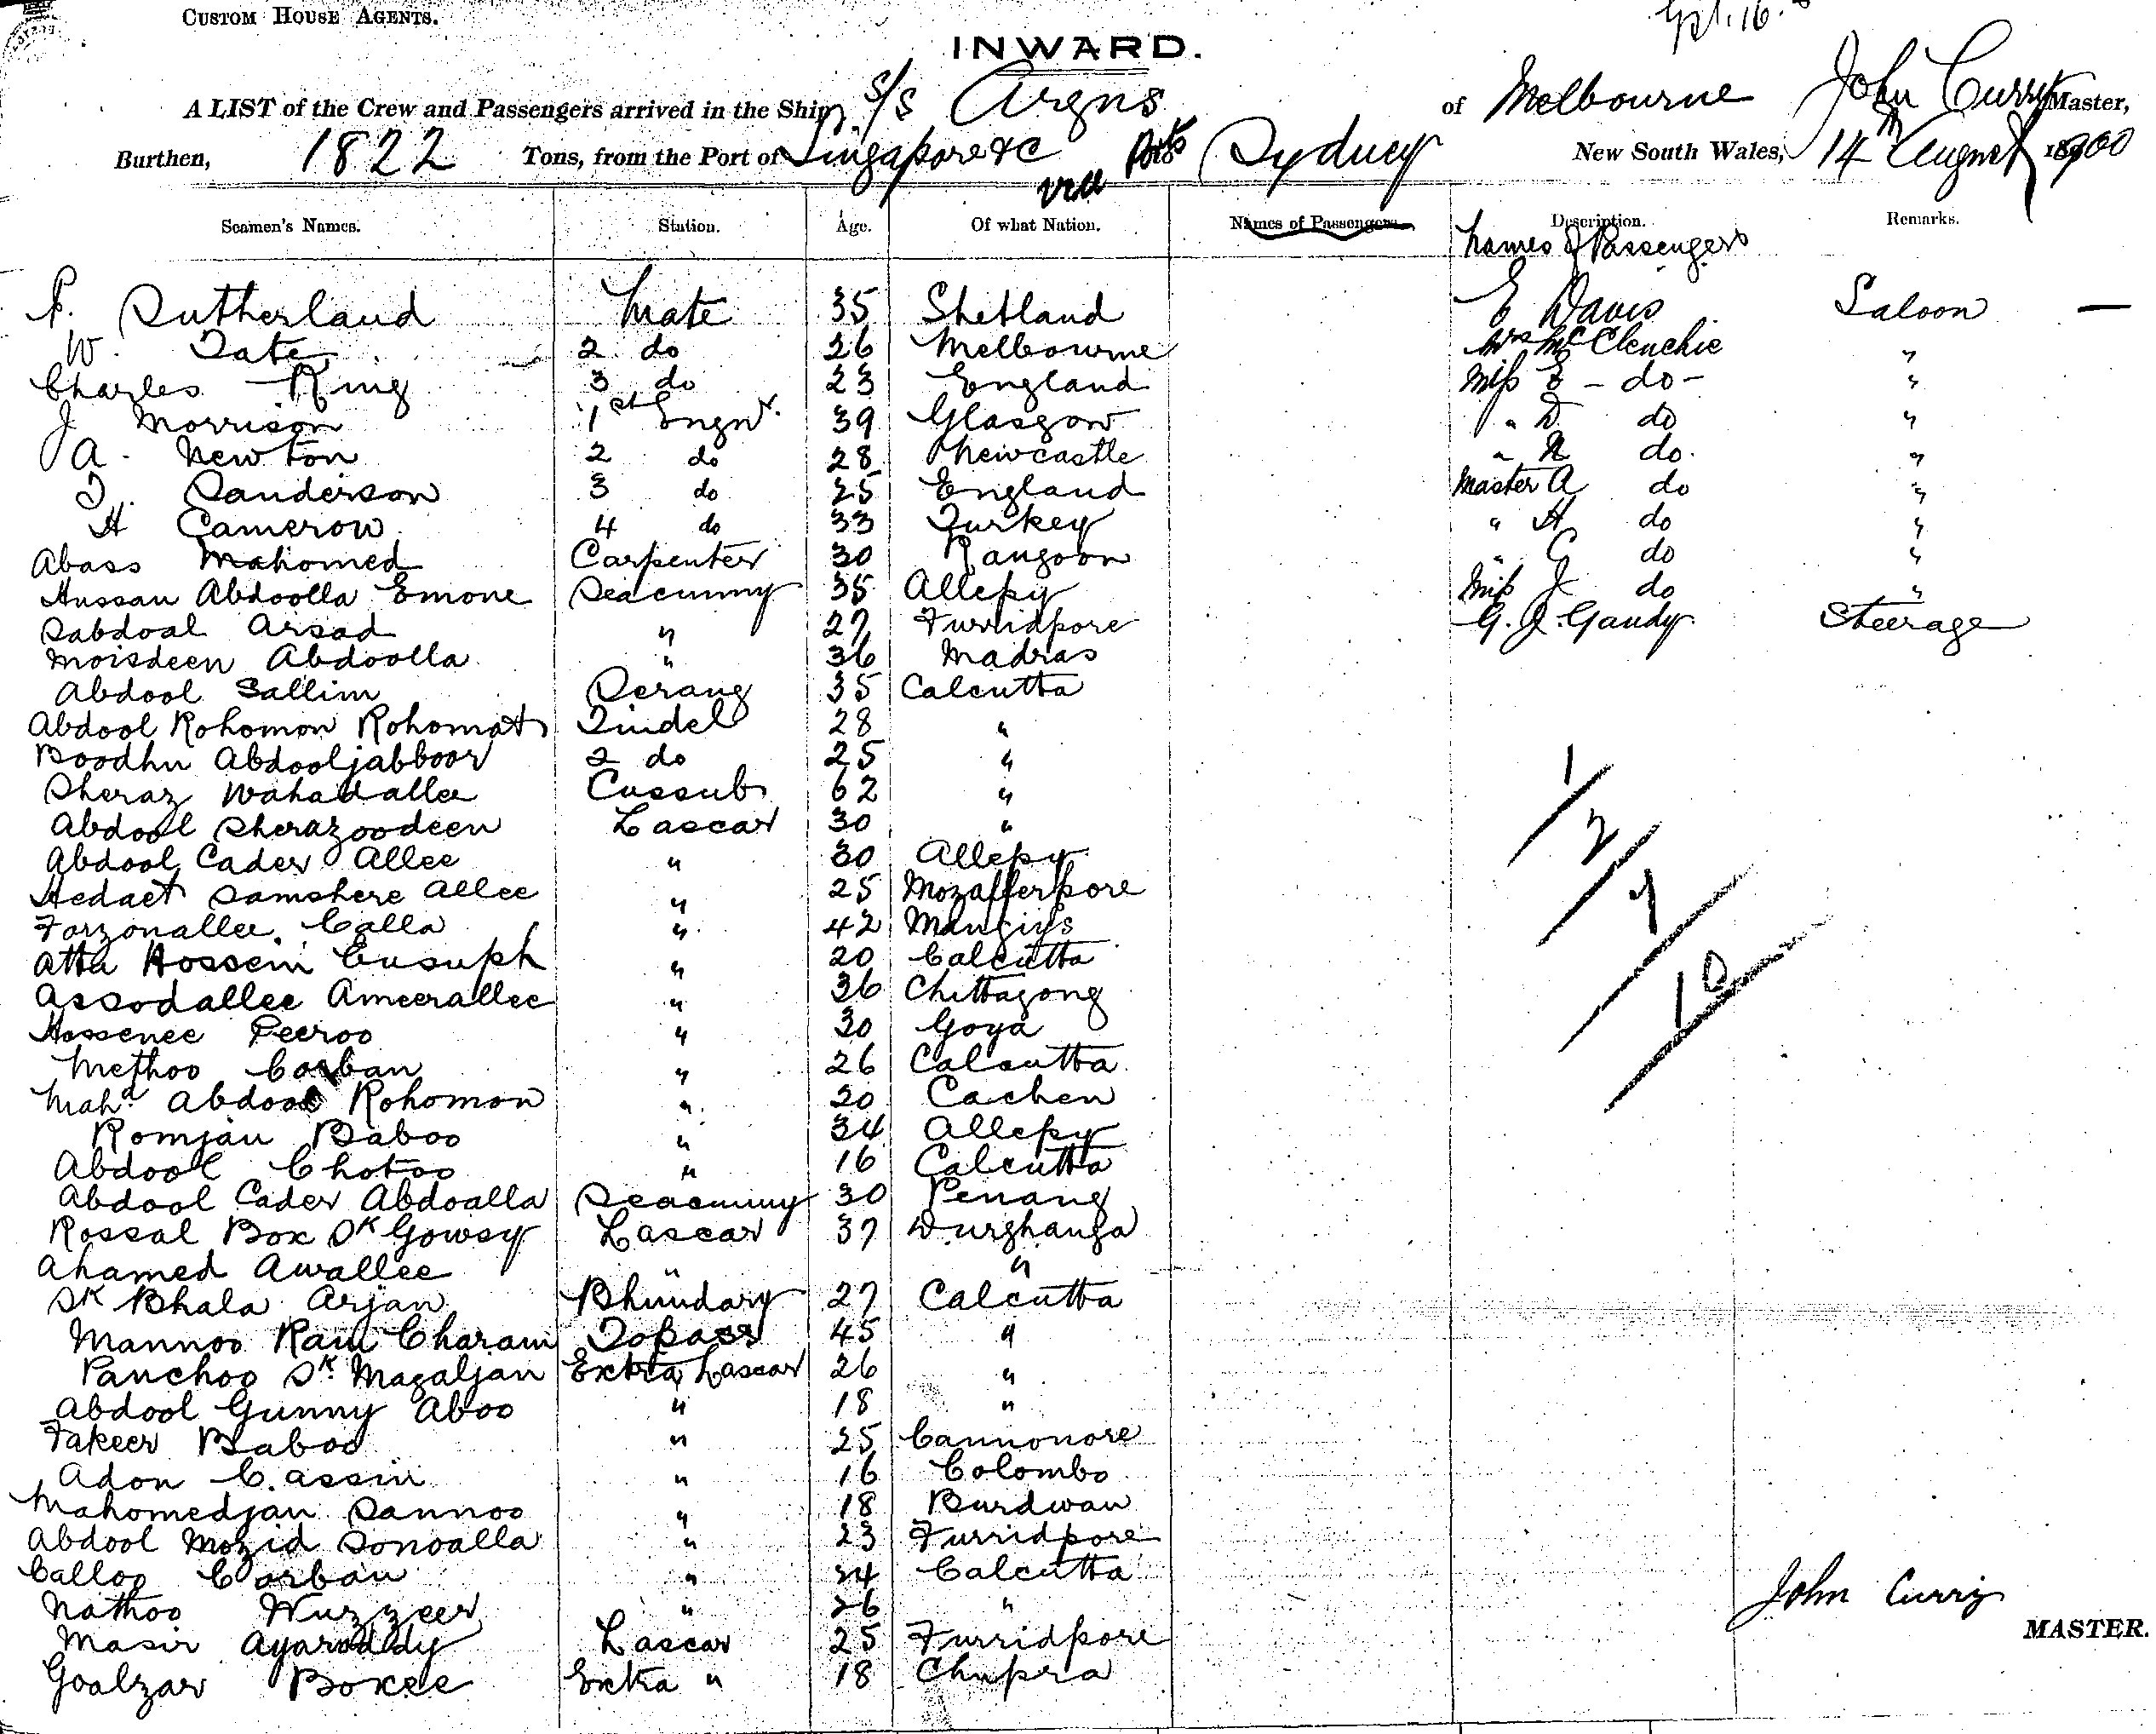 CUSTOM HOUSE AGENTS.
Spt. 16.
INWARD.
A LIST of the Crew and Passengers arrived in the Ship, s/s Argus of Melbourne John Curry Master,
Burthen, 1822 Tons, from the Port of Singapore &c via Ports Sydney New South Wales, 14th August 1900
Seamen's Names. Station. Age. Of what Nation. Names of Passengers. Description. Remarks.
Names of Passengers
P. Sutherland Mate 35 Shetland E Davis Saloon —
W. Tate 2 do 26 Melbourne Mrs McClenchie "
Charles King 3 do 23 England Miss E - do - "
J Morrison 1st Engnr. 39 Glasgow " D do "
A. Newton 2 do 28 Newcastle " N do. "
T. Sanderson 3 do 25 England Master A do "
H Camerow 4 do 33 Turkey " H do "
Abass Mahomed Carpenter 30 Rangoon " G do "
Hussan Abdoolla Emone Seacunny 35 Allepy Miss J do "
Sabdoal Arsad " 27 Furridpore G. J. Gandy Steerage
Moisdeen Abdoolla " 36 Madras
Abdool Sallim Serang 35 Calcutta
Abdool Rohomon Rohomat Tindel 28 "
Boodhu Abdooljabboor 2 do 25 "
Sheraz Wahadallee Cussub 62 "
Abdool Sherazoodeen Lascar 30 "
Abdool Cader Allee " 30 Allepy
Hedaet Samshere Allee " 25 Mozafferpore
Forzonallee Calla " 42
Atta Hossein Eusuph " 20 Calcutta
Assodallee Ameerallee " 36 Chittagong
Hossenee Peeroo " 30 Goya
Methoo Corban " 26 Calcutta
Mahd. Abdool Rohomon " 20 Cachen
Romjan Baboo " 34 Allepy
Abdool Chotoo " 16 Calcutta
Abdool Cader Abdoalla Seacunny 30 Penang
Rossal Box Sk Gowsy Lascar 37 Durghanga
Ahamed Awallee " "
Sk Bhala Arjan Bhundary 27 Calcutta
Mannoo Ram Charam Topass 45 "
Panchoo Sk. Magaljan Extra Lascar 26 "
Abdool Gunny Aboo " 18 "
Fakeer Baboo " 25 Cannonore
Adon Cassim " 16 Colombo
Mahomedjan Sannoo " 18 Burdwan
Abdool Mozid Sonoalla " 23 Furridpore
Calloo Corban " 34 Calcutta
Nathoo Wuzzeer " 26 "
Masir Ayaroddy Lascar 25 Furridpore
Goalzar Boxee Extra " 18 Chupra
1/
2/
7/
10/
John Curry
MASTER.